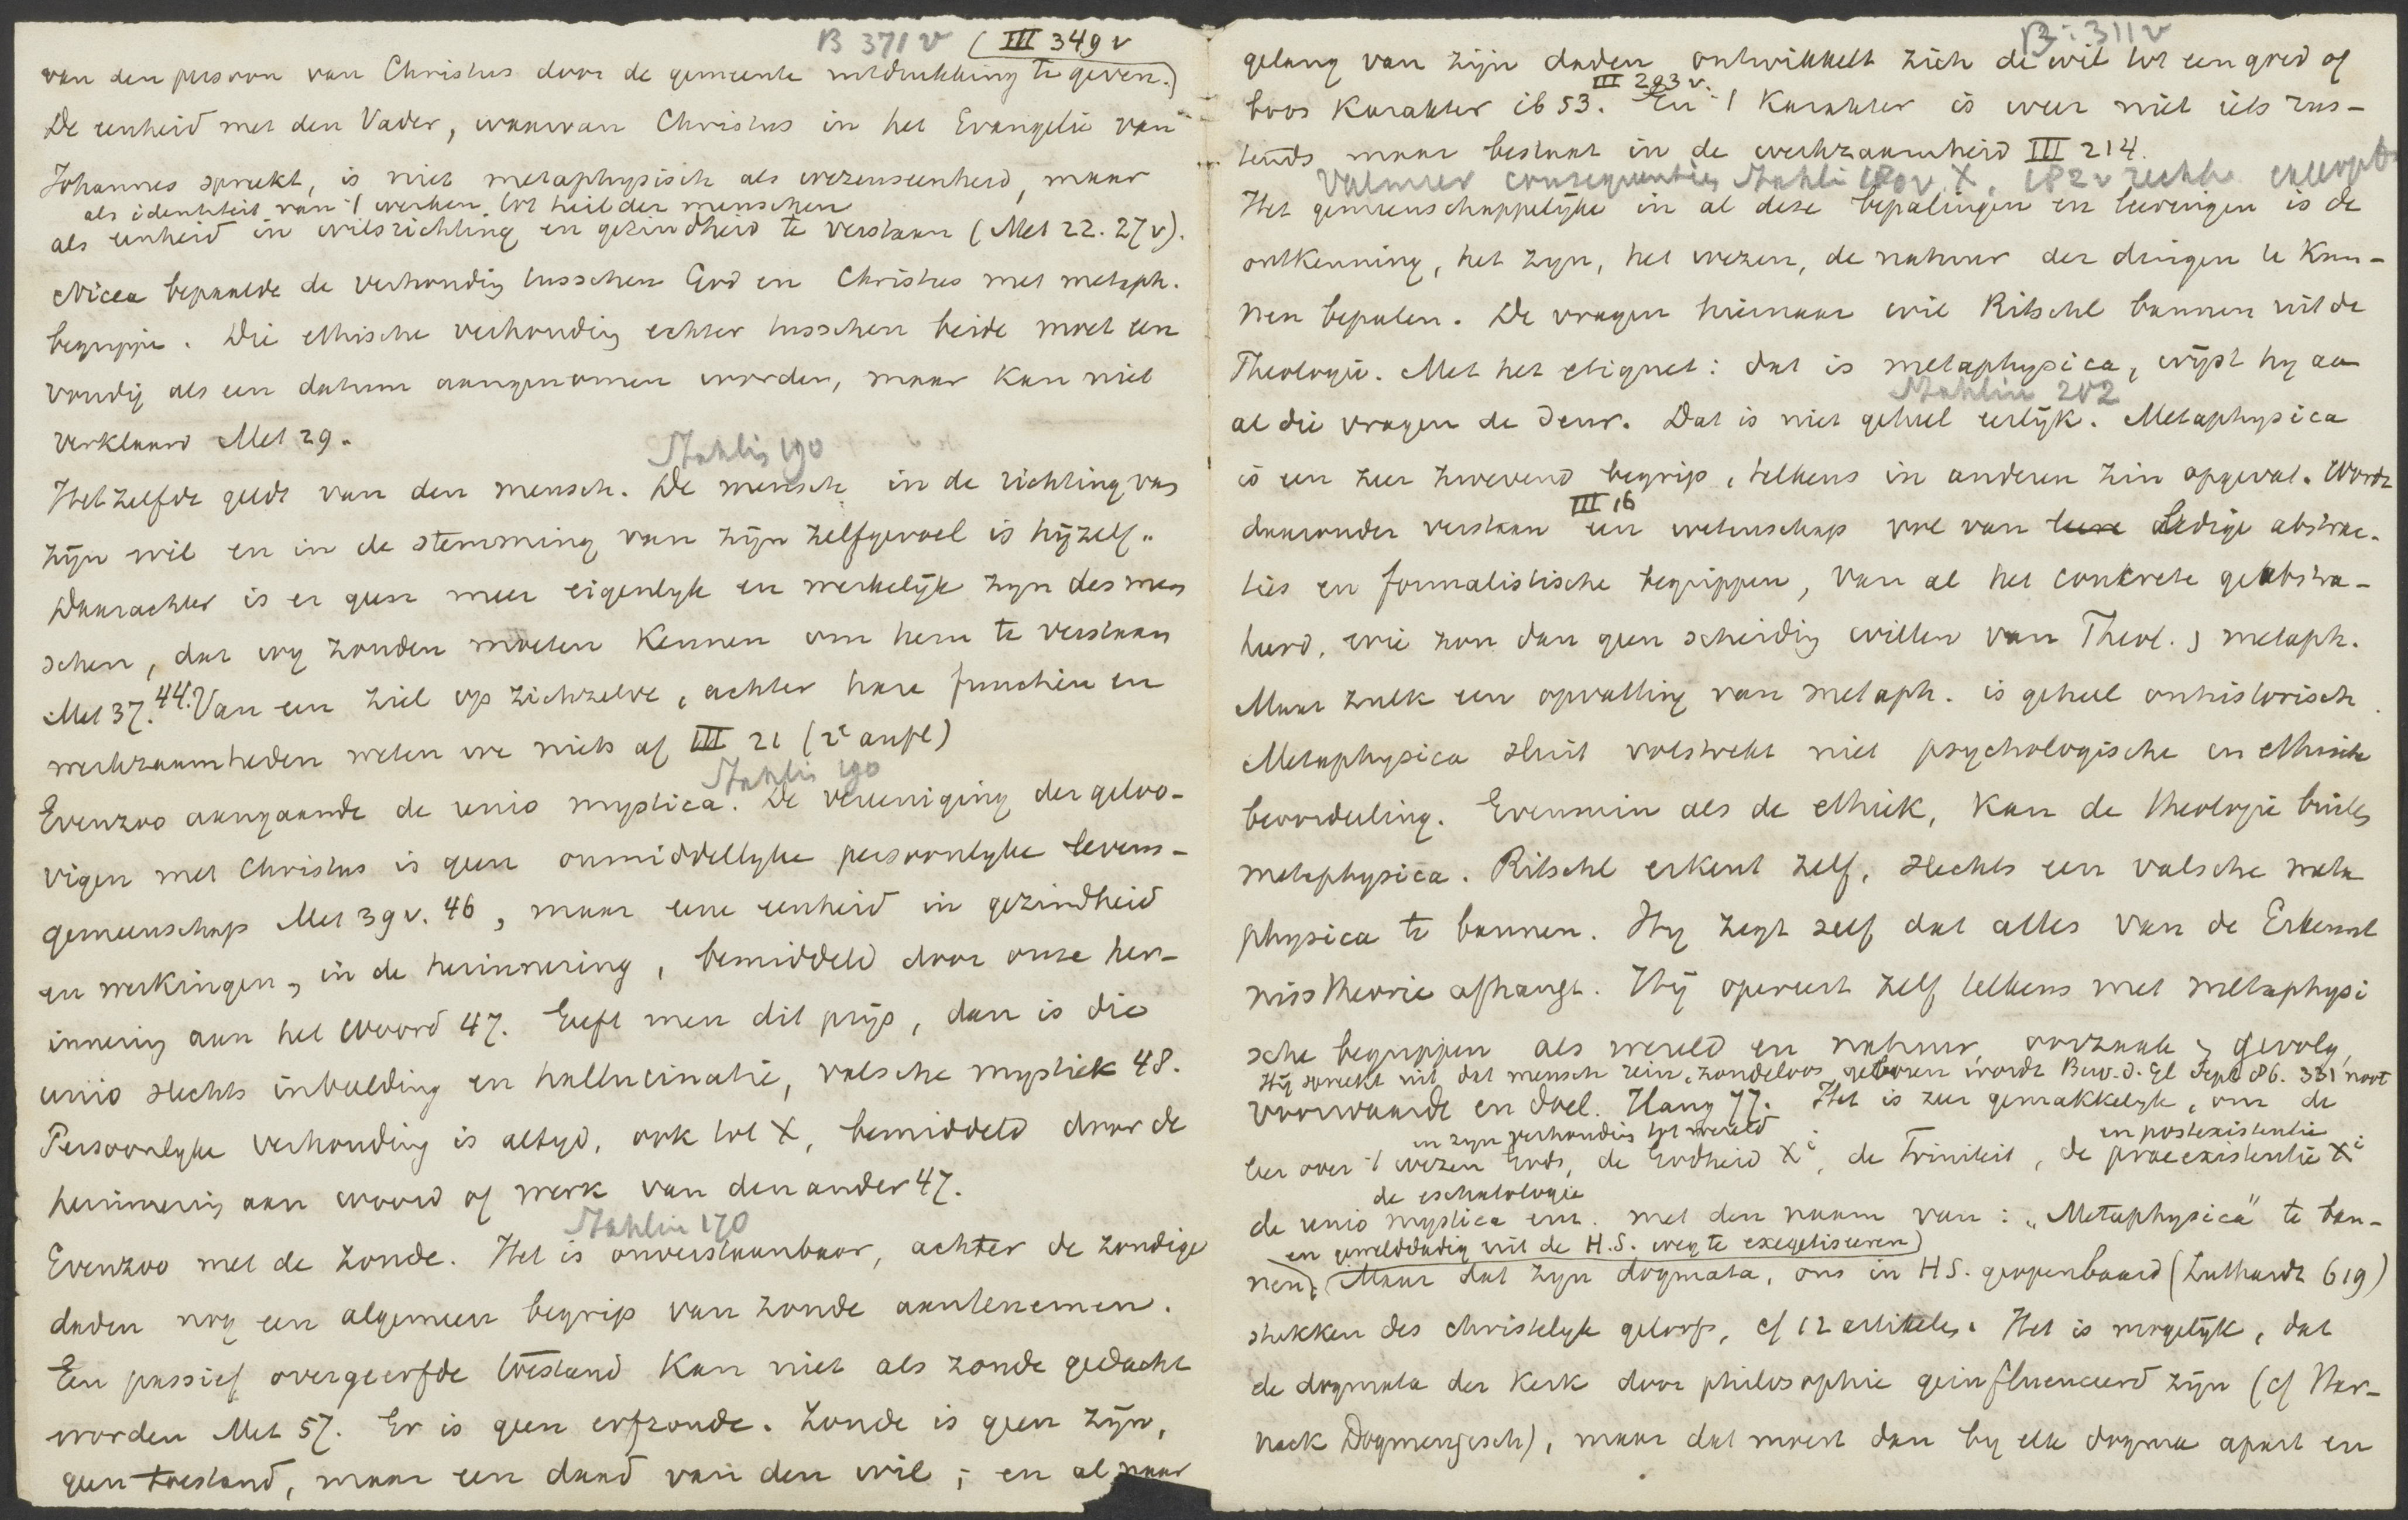 B 371 v (III 349 v
van den persoon van Christus door de gemeente uitdrukking te geven.)
De eenheid met den Vader, waarvan Christus in het Evangelie van
Johannes spreekt, is niet metaphysisch als wezenseenheid, maar
als identiteit van 't werken tot heil der menschen
als eenheid in wilsrichting en gezindheid te verstaan (Met 22. 27 v).
Nicea bepaalde de verhouding tusschen God en Christus met metaph.
begrippen. Die ethische verhouding echter tusschen beide moet een
voudig als een datum aangenomen worden, maar kan niet
verklaard Met 29.
Stahlin 190
Hetzelfde geldt van den mensch. De mensch in de richting van
zijn wil en in de stemming van zijn zelfgevoel is hijzelf.
Daarachter is er geen meer eigenlyk en werkelijk zyn des men
schen, dat wy zouden moeten kennen om hem te verstaan
Met 37. 44. Van een ziel op zichzelve, achter hare functiën en
werkzaamheden weten we niets af III 21 (2e aufl)
Stahlin 190
Evenzoo aangaande de unio mystica. De vereeniging der geloo-
vigen met Christus is geen onmiddellyke persoonlyke levens-
gemeenschap Met 39 v. 46, maar eene eenheid in gezindheid
en werkingen, in de herinnering, bemiddeld door onze her-
innering aan het Woord 47. Geeft men dit prijs, dan is die
unio slechts inbeelding en hallucinatie, valsche mystiek 48.
Persoonlyke verhouding is altyd, ook tot X, bemiddeld door de
herinnering aan woord of werk van den ander 47.
Stahlin 170
Evenzoo met de zonde. Het is onverstaanbaar, achter de zondige
daden nog een algemeen begrip van zonde aantenemen.
Een passief overgeerfde toestand kan niet als zonde gedacht
worden Met 57. Er is geen erfzonde. Zonde is geen zijn,
geen toestand, maar een daad van den wil; en al naar
B: 311 v
gelang van zijn daden ontwikkelt zich de wil tot een goed of
III 293 v.
boos karakter ib 53. En 't karakter is weer niet iets rus-
tends maar bestaat in de werkzaamheid III 214.
consequenties Stahlin 180 v. X, 182 v
Het gemeenschappelijke in al deze bepalingen en leeringen is de
ontkenning, het zyn, het wezen, de natuur der dingen te kun-
nen bepalen. De vragen hiernaar wil Ritschl bannen uit de
Theologie. Met het etiquet: dat is metaphysica, wijst hy aan
Stahlin 202
al die vragen de deur. Dat is niet geheel eerlijk. Metaphysica
is een zeer zwevend begrip, telkens in anderen zin opgevat. Wordt
III 16
daaronder verstaan een wetenschap vol van leere ledige abstrac-
ties en formalistische begrippen, van al het concrete geabstra-
heerd, wie zou dan geen scheiding willen van Theol. & metaph.
Maar zulk een opvatting van metaph. is geheel onhistorisch.
Metaphysica sluit volstrekt niet psychologische en ethische
beoordeeling. Evenmin als de ethiek, kan de theologie buiten
metaphysica. Ritschl erkent zelf, slechts een valsche meta
physica te bannen. Hy zegt zelf dat alles van de Erkennt
nisstheorie afhangt. Hij opereert zelf telkens met metaphysi
sche begrippen als wereld en natuur, oorzaak & gevolg,
Hij spreekt uit dat mensch rein, zondeloos geboren wordt Bew. d. Gl Sept 86. 331 noot
voorwaarde en doel. Haug 77. Het is zeer gemakkelyk, om de
in zyn verhouding tot wereld en postexistentie
leer over 't wezen Gods, de Godheid Xi, de Triniteit, de praeexistentie Xi
de eschatologie
de unio mystica enz. met den naam van: „Metaphysica" te ban-
en gewelddadig uit de H.S. weg te exegetiseeren)
nen, (Maar dat zyn dogmata, ons in H S. geopenbaard (Luthardt 619)
stukken des christelyk geloofs, cf 12 artikelen. Het is mogelijk, dat
de dogmata der kerk door philosophie geinfluenceerd zijn (cf Har-
nack Dogmengesch), maar dat moest dan by elk dogma apart en